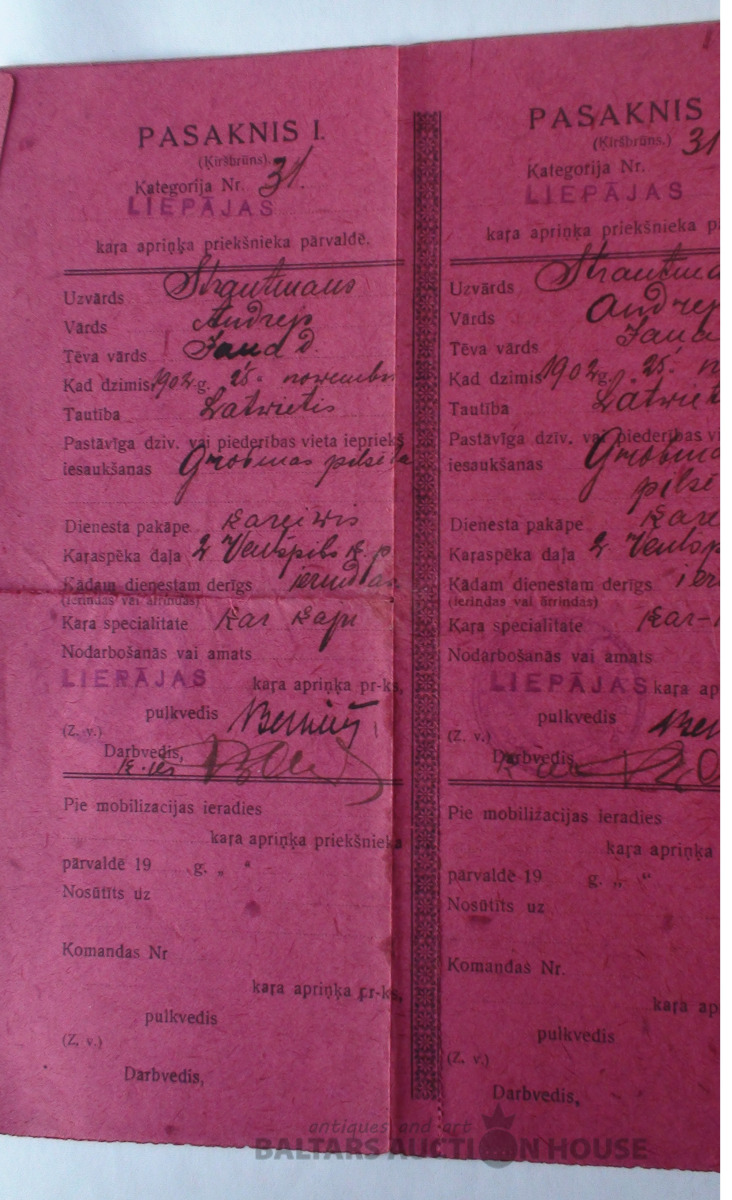 PASAKNIS I.
(Ķiršbrūns).
Kategorija Nr. 31.
LIEPĀJAS
kaŗa apriņķa priekšnieka pārvaldē.
Uzvārds Strautmans
Vārds Andrejs
Tēva vārds Jāņa d.
Kad dzimis 1902 g. 25. novembrī
Tautība Latwietis
Pastāvīga dzīv. vai piederības vieta iepriekš
iesaukšanas Grobiņas pilsēta
Dienesta pakāpe kareiwis
Kaŗaspēka daļa 2 Ventspils k. p.
Kādam dienestam derīgs ierindas
(ierindas vai ārrindas)
Kaŗa specialitate
Nodarbošanās vai amats
LIEPĀJAS kaŗa apriņķa pr-ks,
pulkvedis
(Z. v.)
Darbvedis,
Pie mobilizacijas ieradies
kaŗa apriņķa priekšnieka
pārvaldē 19 g. „ “
Nosūtīts uz
Komandas Nr
kaŗa apriņķa pr-ks,
pulkvedis
(Z. v.)
Darbvedis,
PASAKNIS
(Ķiršbrūns.)
Kategorija Nr. 31
LIEPĀJAS
kaŗa apriņķa priekšnieka
Uzvārds Strautma
Vārds Andrej
Tēva vārds
Kad dzimis 1902 g. 25.
Tautība Latwiet
Pastāvīga dzīv. vai piederības vi
iesaukšanas
Dienesta pakāpe kare
Kaŗaspēka daļa 2 Ventsp
Kādam dienestam derīgs ie
(ierindas vai ārrindas)
Kaŗa specialitate
Nodarbošanās vai amats
LIEPĀJAS kaŗa ap
pulkvedis
(Z. v.)
Darbvedis,
Pie mobilizacijas ieradies
kaŗa apriņķa
pārvaldē 19 g. „ “
Nosūtīts uz
Komandas Nr.
kaŗa ap
pulkvedis
(Z. v.)
Darbvedis,
antiques and art
BALTARS AUCTION HOUSE